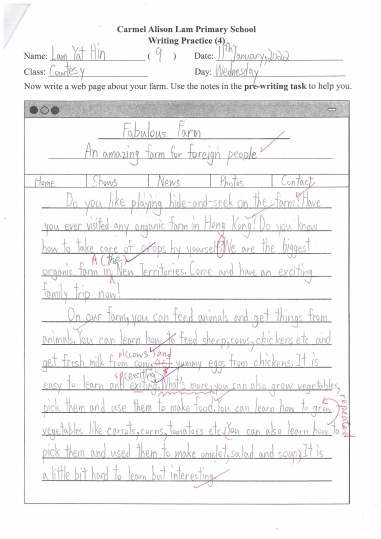 Carmel Alison Lam Primary School
Writing Practice (4)
Name: Lam Yat Hin ( 9 ) Date: 11th January, 2022
Class: Courtesy Day: Wednesday
Now write a web page about your farm. Use the notes in the pre-writing task to help you.
Fabulous Farm
An amazing farm for foreign people
Home Shows News Photos Contact
Do you like playing hide-and-seek on the farm? Have
you ever visited any organic farm in Hong Kong? Do you know
how to take care of crops by yourself? We are the biggest
A (the)
organic farm in New Territories. Come and have an exciting
family trip now!
On our farm, you can feed animals and get things from
animals. You can learn how to feed sheep, cows, chickens etc and
pl cows and
get fresh milk from cow, get yummy eggs from chickens. It is
sp exciting
easy to learn and exting. What's more, you can also grow vegetables,
pick them and use them to make food. You can learn how to grow
vegetables like carrots, corns, tomatoes etc. You can also learn how to
repeated
pick them and used them to make omelet, salad and soup. It is
a little bit hard to learn but interesting.